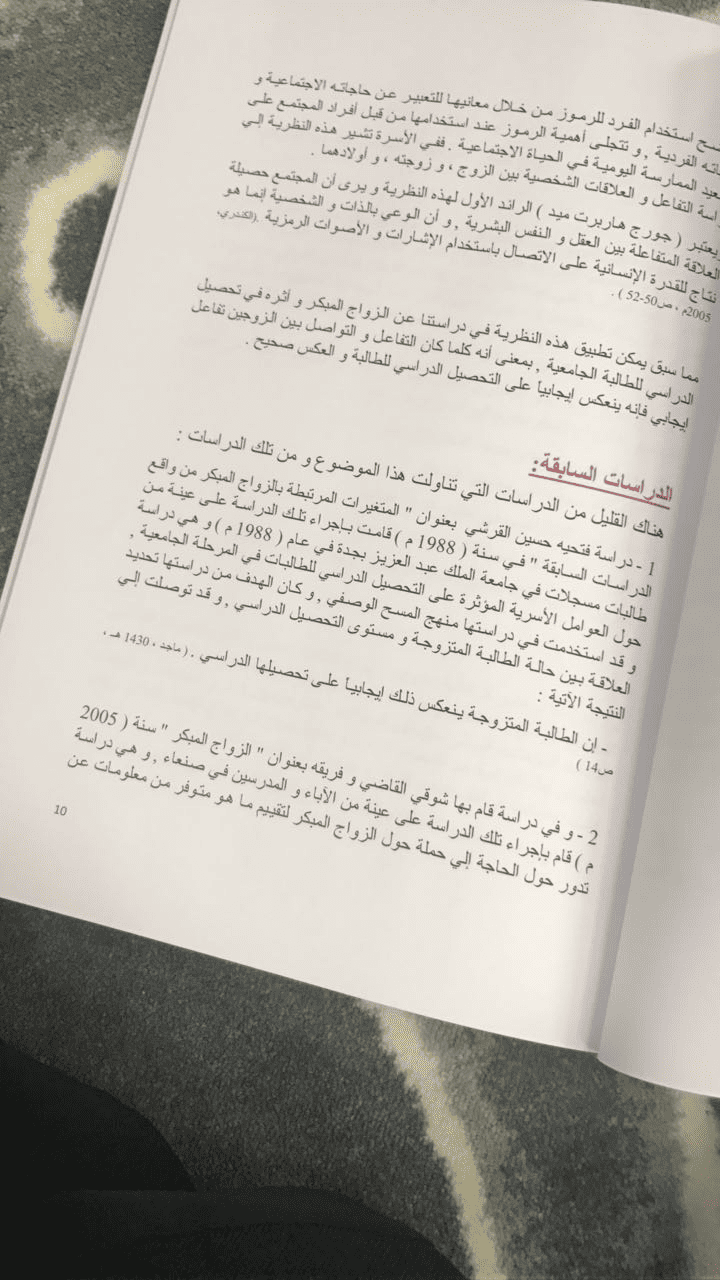 استخدام الفرد للرموز من خلال معانيها للتعبير عن حاجاته الاجتماعية و
الفردية , و تتجلى أهمية الرموز عند استخدامها من قبل أفراد المجتمع على
الممارسة اليومية في الحياة الاجتماعية . ففي الأسرة تشير هذه النظرية إلي
التفاعل و العلاقات الشخصية بين الزوج ، و زوجته ، و أولادهما .
ويعتبر ( جورج هاربرت ميد ) الرائد الأول لهذه النظرية و يرى أن المجتمع حصيلة
العلاقة المتفاعلة بين العقل و النفس البشرية , و أن الوعي بالذات و الشخصية إنما هو
نتاج للقدرة الإنسانية على الاتصال باستخدام الإشارات و الأصوات الرمزية .(الكندري،
2005م ، ص50-52 ) .
مما سبق يمكن تطبيق هذه النظرية في دراستنا عن الزواج المبكر و أثره في تحصيل
الدراسي للطالبة الجامعية , بمعنى أنه كلما كان التفاعل و التواصل بين الزوجين تفاعل
إيجابي فإنه ينعكس إيجابياً على التحصيل الدراسي للطالبة و العكس صحيح .
الدراسات السابقة:
هناك القليل من الدراسات التي تناولت هذا الموضوع و من تلك الدراسات :
1 - دراسة فتحيه حسين القرشي بعنوان " المتغيرات المرتبطة بالزواج المبكر من واقع
الدراسات السابقة " في سنة ( 1988 م ) قامت بإجراء تلك الدراسة على عينة من
طالبات مسجلات في جامعة الملك عبد العزيز بجدة في عام ( 1988 م ) و هي دراسة
حول العوامل الأسرية المؤثرة على التحصيل الدراسي للطالبات في المرحلة الجامعية ,
و قد استخدمت في دراستها منهج المسح الوصفي , و كان الهدف من دراستها تحديد
العلاقة بين حالة الطالبة المتزوجة و مستوى التحصيل الدراسي , و قد توصلت إلي
النتيجة الآتية :
- إن الطالبة المتزوجة ينعكس ذلك إيجابياً على تحصيلها الدراسي . ( ماجد ، 1430 هـ ،
ص14 )
2 - و في دراسة قام بها شوقي القاضي و فريقه بعنوان " الزواج المبكر " سنة ( 2005
م ) قام بإجراء تلك الدراسة على عينة من الأباء و المدرسين في صنعاء , و هي دراسة
تدور حول الحاجة إلي حملة حول الزواج المبكر لتقييم ما هو متوفر من معلومات عن
10